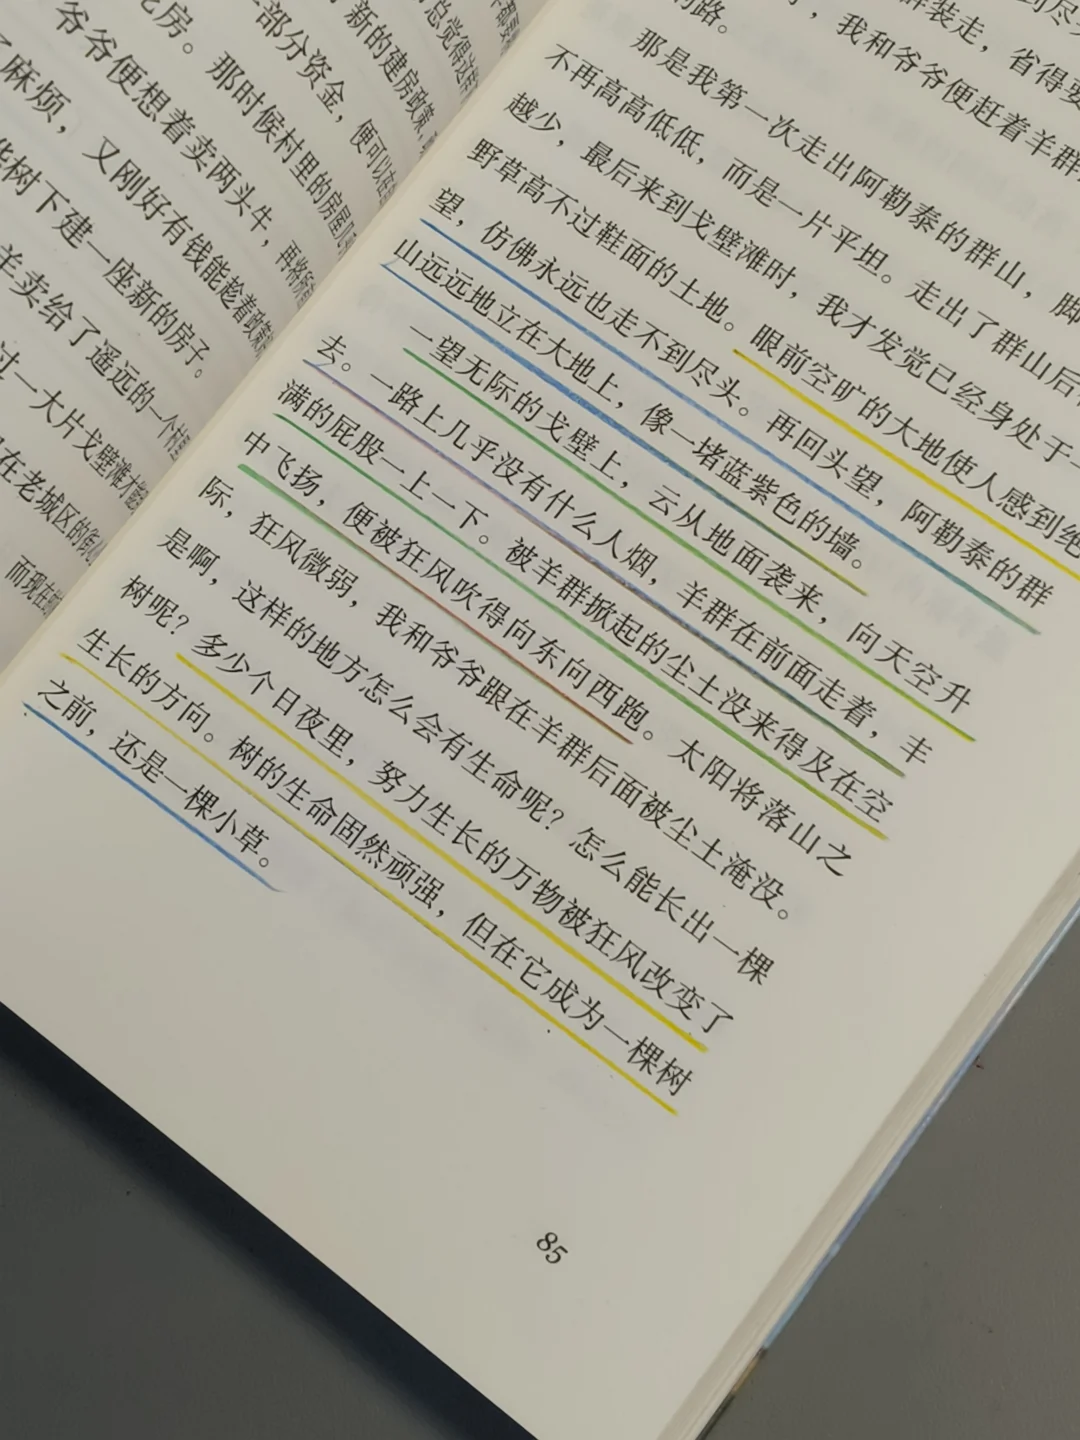 总觉得这样
新的建房政策，
部分资金，便可以在
房。那时候村里的房屋几
爷爷便想着卖两头牛，再将
麻烦，又刚好有钱能趁着政策
树下建一座新的房子。
羊卖给了遥远的一个村
过一大片戈壁滩才能
在老城区的
而现在
群装走，省得要
的路。
，我和爷爷便赶着羊群
那是我第一次走出阿勒泰的群山，脚
不再高高低低，而是一片平坦。走出了群山后
越少，最后来到戈壁滩时，我才发觉已经身处于一
野草高不过鞋面的土地。眼前空旷的大地使人感到绝
望，仿佛永远也走不到尽头。再回头望，阿勒泰的群
山远远地立在大地上，像一堵蓝紫色的墙。
一望无际的戈壁上，云从地面袭来，向天空升
去。一路上几乎没有什么人烟，羊群在前面走着，丰
满的屁股一上一下。被羊群掀起的尘土没来得及在空
中飞扬，便被狂风吹得向东向西跑。太阳将落山之
际，狂风微弱，我和爷爷跟在羊群后面被尘土淹没。
是啊，这样的地方怎么会有生命呢？怎么能长出一棵
树呢？多少个日夜里，努力生长的万物被狂风改变了
生长的方向。树的生命固然顽强，但在它成为一棵树
之前，还是一棵小草。
85